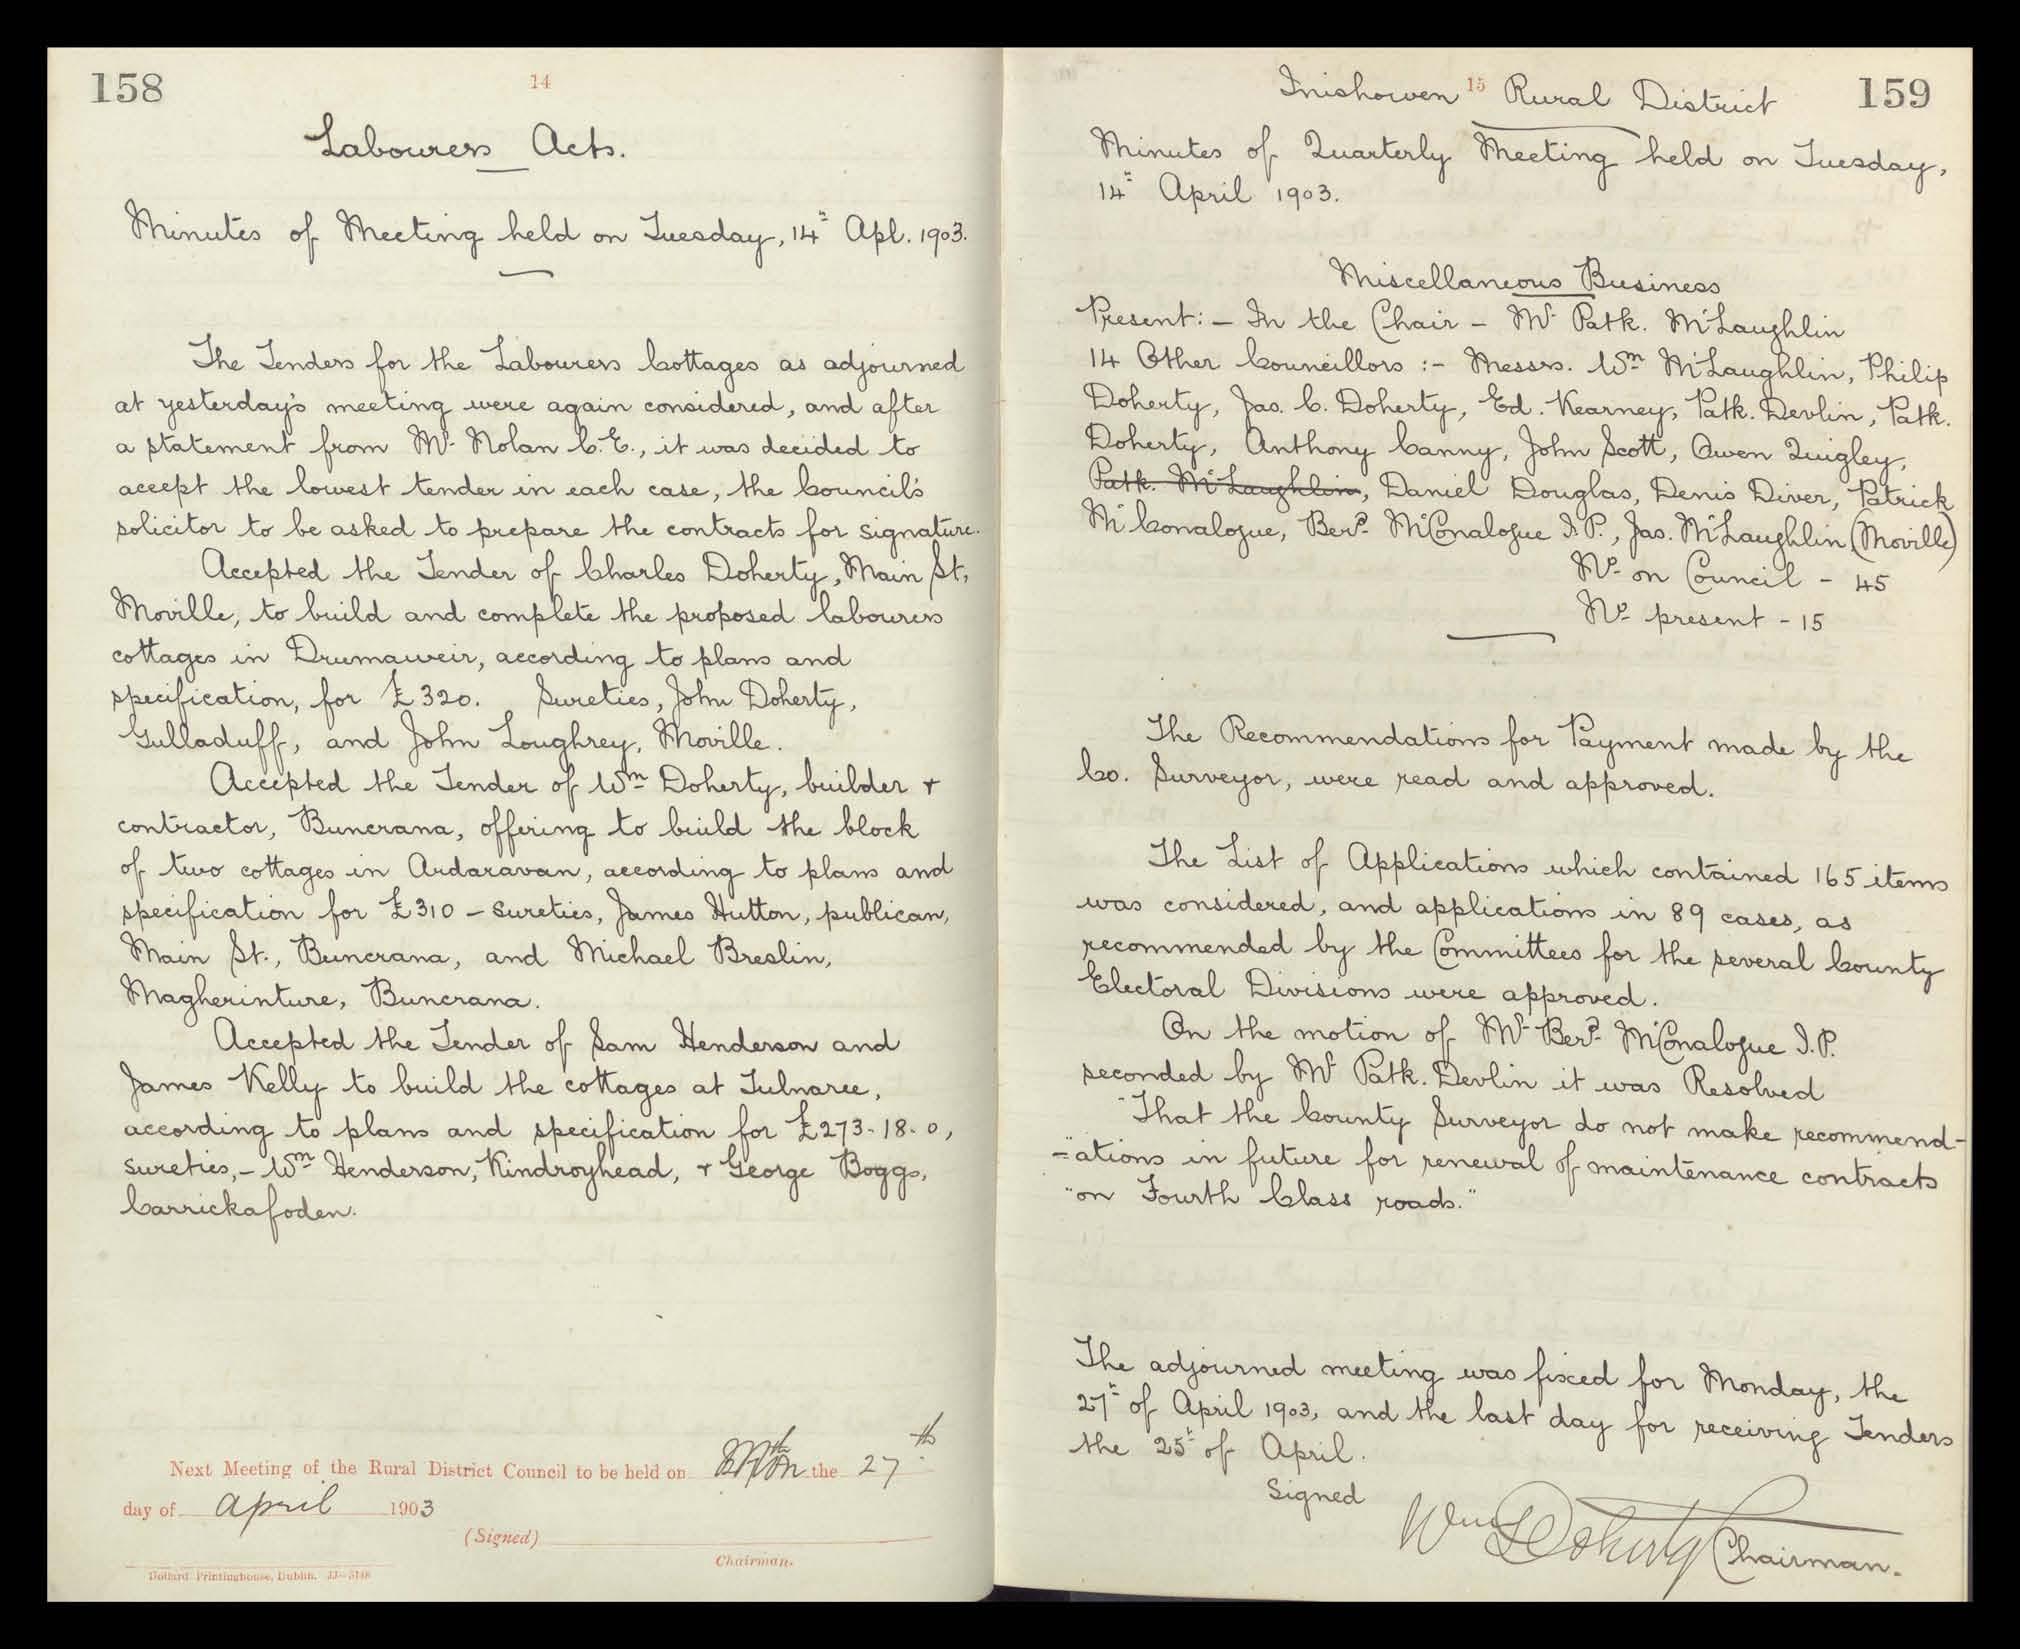 158
14
Labourers Acts.
Minutes of Meeting held on Tuesday, 14th Apl. 1903.
The Tenders for the Labourers Cottages as adjourned
at yesterday's meeting were again considered, and after
a statement from Mr. Nolan C.E., it was decided to
accept the lowest tender in each case, the Council's
solicitor to be asked to prepare the contracts for signature.
Accepted the Tender of Charles Doherty, Main St,
Moville, to build and complete the proposed labourers
cottages in Drumaweir, according to plans and
specification, for £320. Sureties, John Doherty,
Gulladuff, and John Loughrey, Moville.
Accepted the Tender of Wm Doherty, builder +
contractor, Buncrana, offering to build the block
of two cottages in Ardaravan, according to plans and
specification for £310 - sureties, James Hutton, publican,
Main St., Buncrana, and Michael Breslin,
Magherinture, Buncrana.
Accepted the Tender of Sam Henderson and
James Kelly to build the cottages at Tulnaree,
according to plans and specification for £273-18-0,
sureties,- Wm Henderson, Kindroyhead, + George Boggs,
Carrickafoden.
Next Meeting of the Rural District Council to be held on the 27th
day of April 1903
(Signed)
Chairman.
Dollard Printinghouse, Dublin. JJ-5148
Inishowen 15 Rural District
159
Minutes of Quarterly Meeting held on Tuesday,
14th April 1903.
Miscellaneous Business
Present:- In the Chair - Mr Patk. McLaughlin
14 Other Councillors :- Messrs. Wm McLaughlin, Philip
Doherty, Jas. C. Doherty, Ed. Kearney, Patk. Devlin, Patk.
Doherty, Anthony Canny, John Scott, Owen Quigley,
Patk. McLaughlin, Daniel Douglas, Denis Diver, Patrick
McConalogue, Berd. McConalogue J.P., Jas. McLaughlin (Moville)
No on Council - 45
No present - 15
The Recommendations for Payment made by the
Co. Surveyor, were read and approved.
The List of Applications which contained 165 items
was considered, and applications in 89 cases, as
recommended by the Committees for the several County
Electoral Divisions were approved.
On the motion of Mr Berd McConalogue J.P.
seconded by Mr Patk. Devlin it was Resolved
"That the County Surveyor do not make recommend-
"ations in future for renewal of maintenance contracts
"on Fourth Class roads."
The adjourned meeting was fixed for Monday, the
27th of April 1903, and the last day for receiving Tenders
the 25th of April.
Signed
Wm Doherty Chairman.